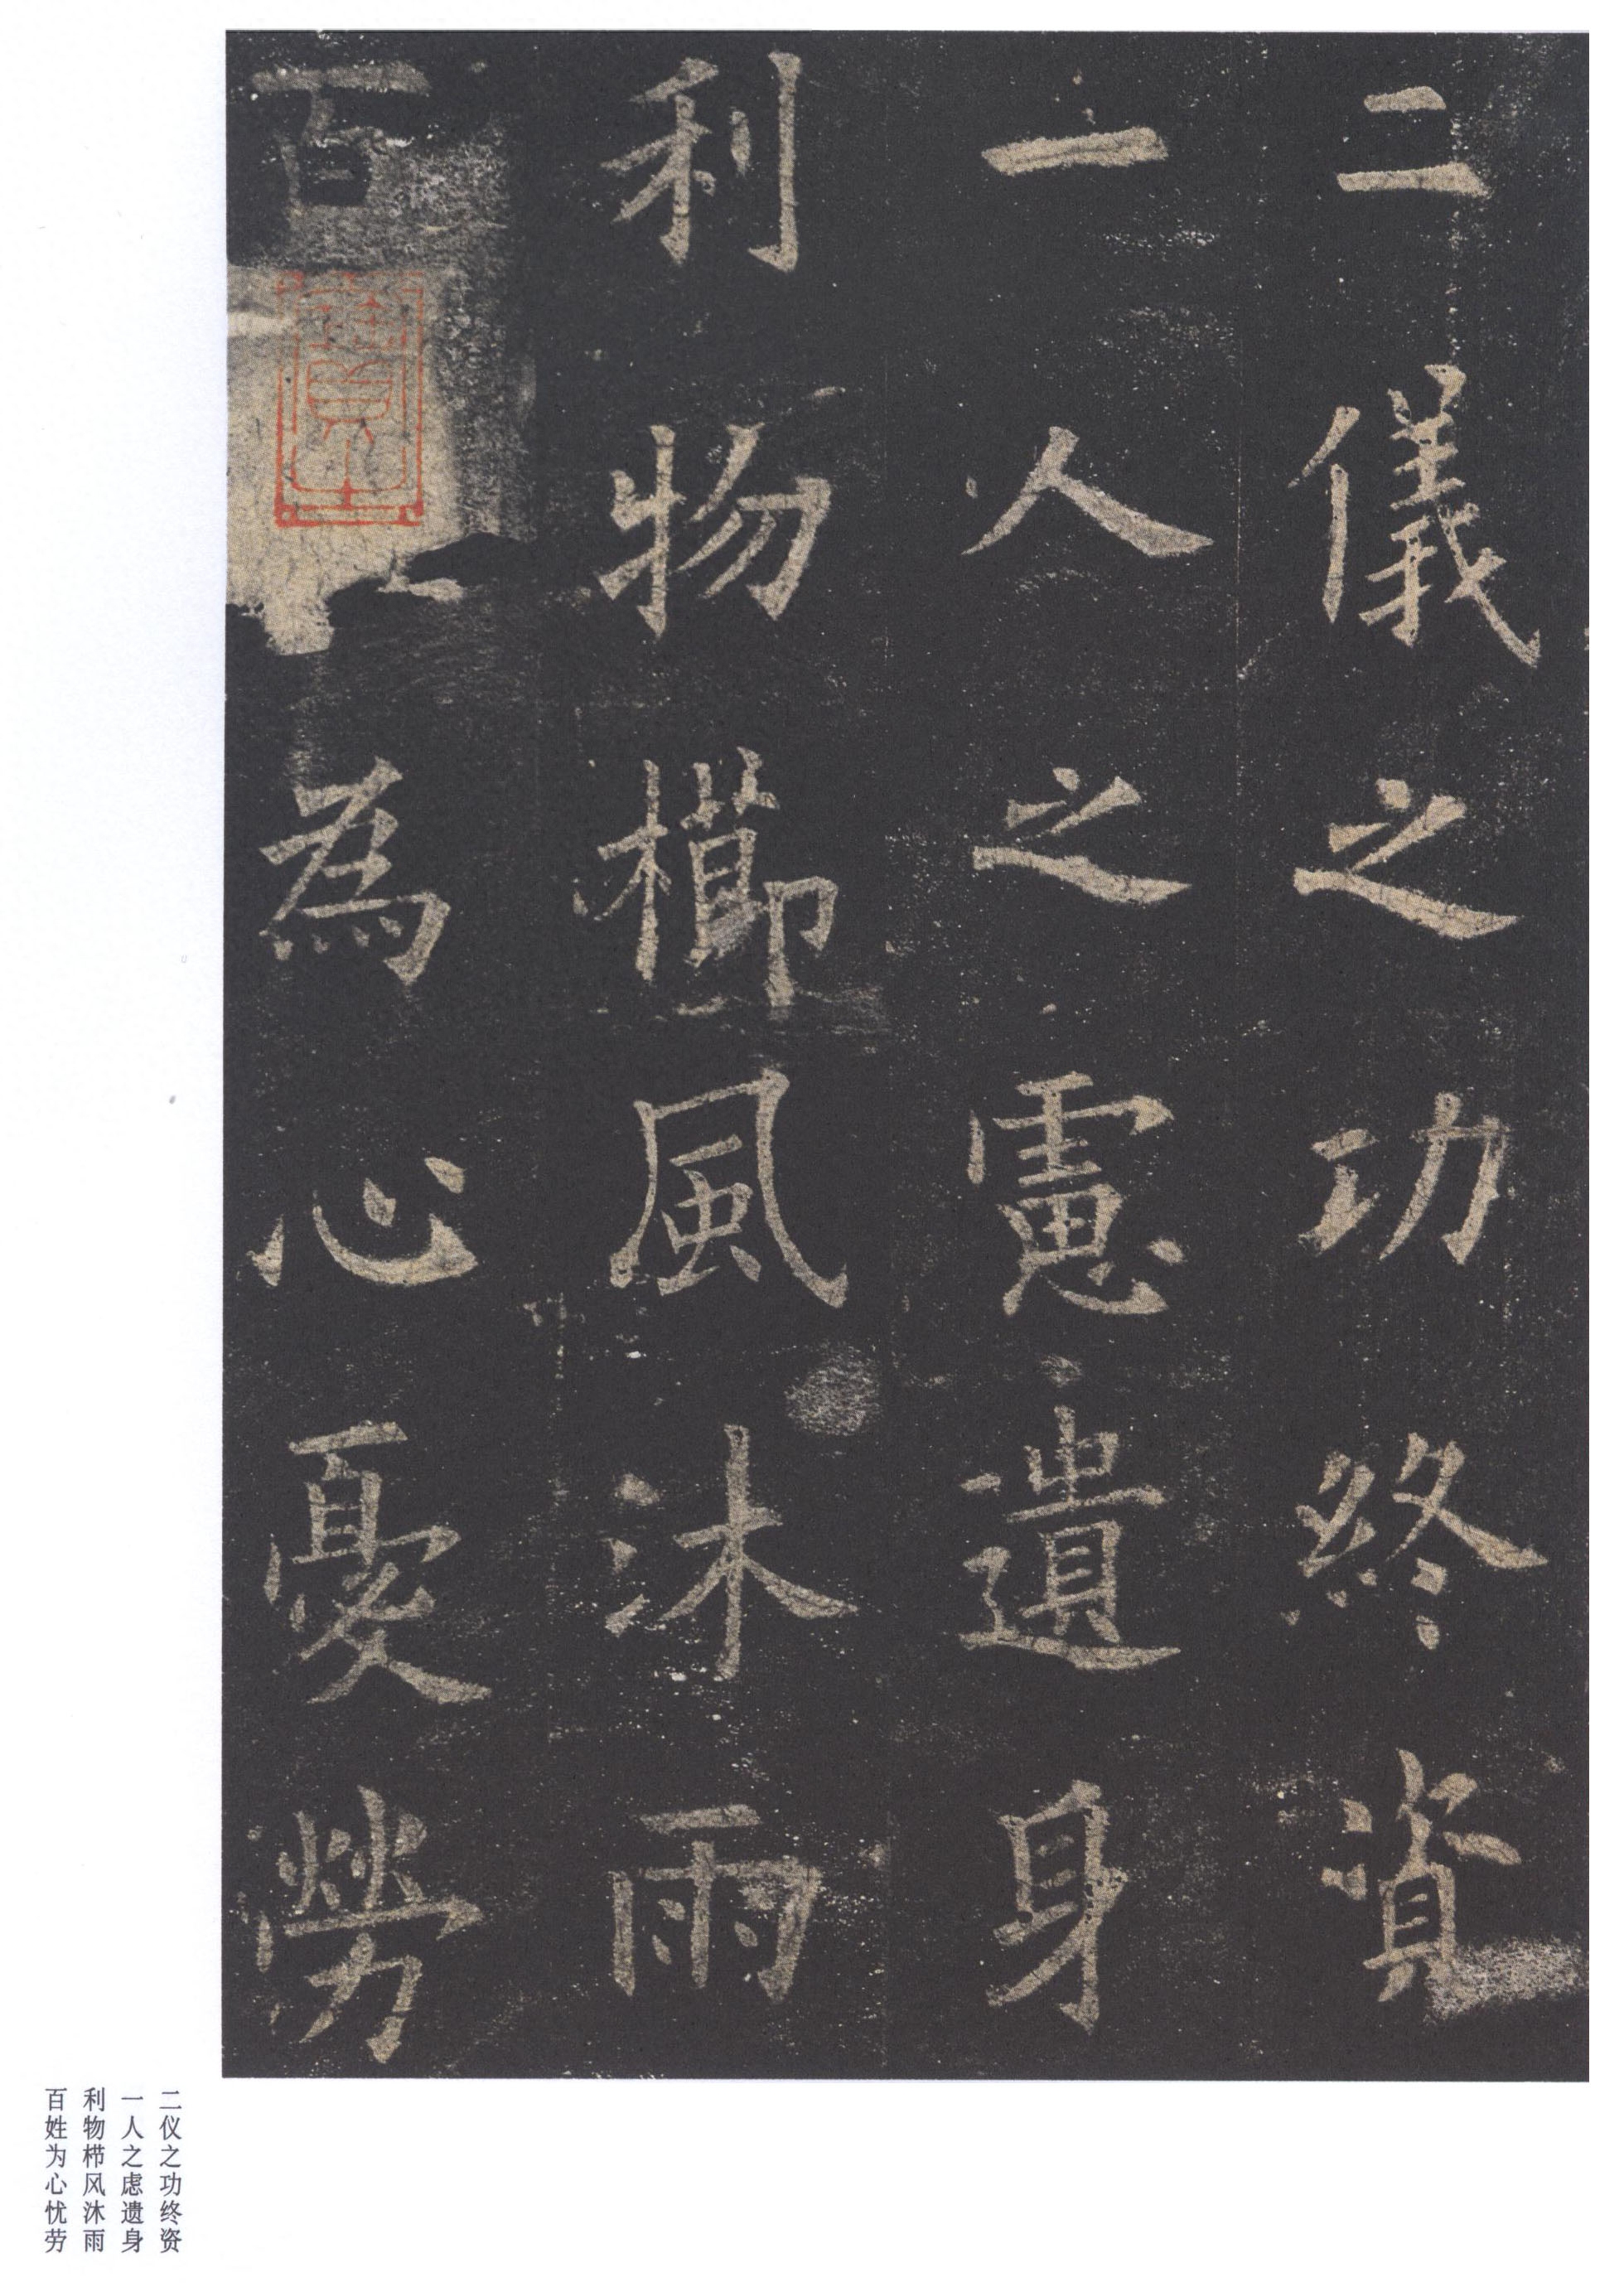 二儀之功終資
一人之慮遺身
利物櫛風沐雨
百為心憂勞
二仪之功终资
一人之虑遗身
利物栉风沐雨
百姓为心忧劳